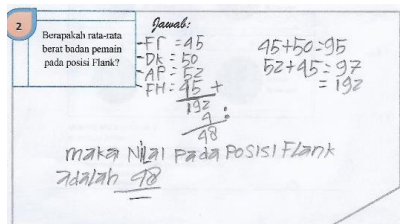 2
Berapakah rata-rata
berat badan pemain
pada posisi Flank?
Jawab:
-FT = 45
-DK = 50
-AP = 52
-FH = 45 +
192
4 :
48
45+50=95
52+45=97
=192
maka Nilai pada posisi Flank
adalah 48